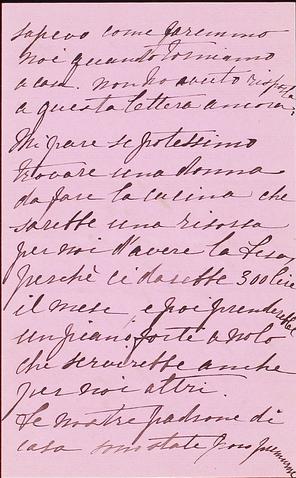 sapevo come faremmo
noi quando torniamo
a casa. non ho avuto risposta
a questa lettera ancora;
Mi pare se potessimo
trovare una donna
da fare la cucina che
sarebbe una risorsa
per noi d'avere la
perchè ci darebbe 300 lire
il mese, e poi prenderebbe
un piano forte a nolo
che servirebbe anche
per noi altri.
Le nostre padrone di
casa sono state poco